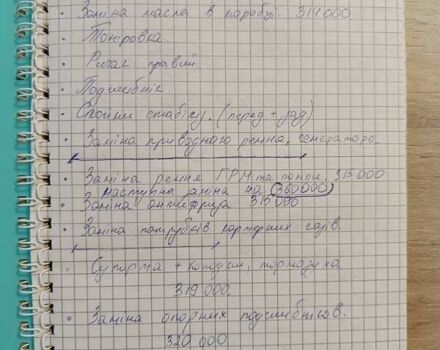 Заміна масла в коробці 314000
Тоніровка.
Ричаг правий
Подшибнік
Стойки стабілу. (перед + зад)
Заміна приводного ремня, генератора
Заміна ремня ГРМ та помпи. 315000
наступна заміна на 360000
Заміна антифриза 315000
Заміна патрубків картерних газів.
Супорта + колодки, порнозуха
319 000.
Заміна опорних подшибніков.
320 000